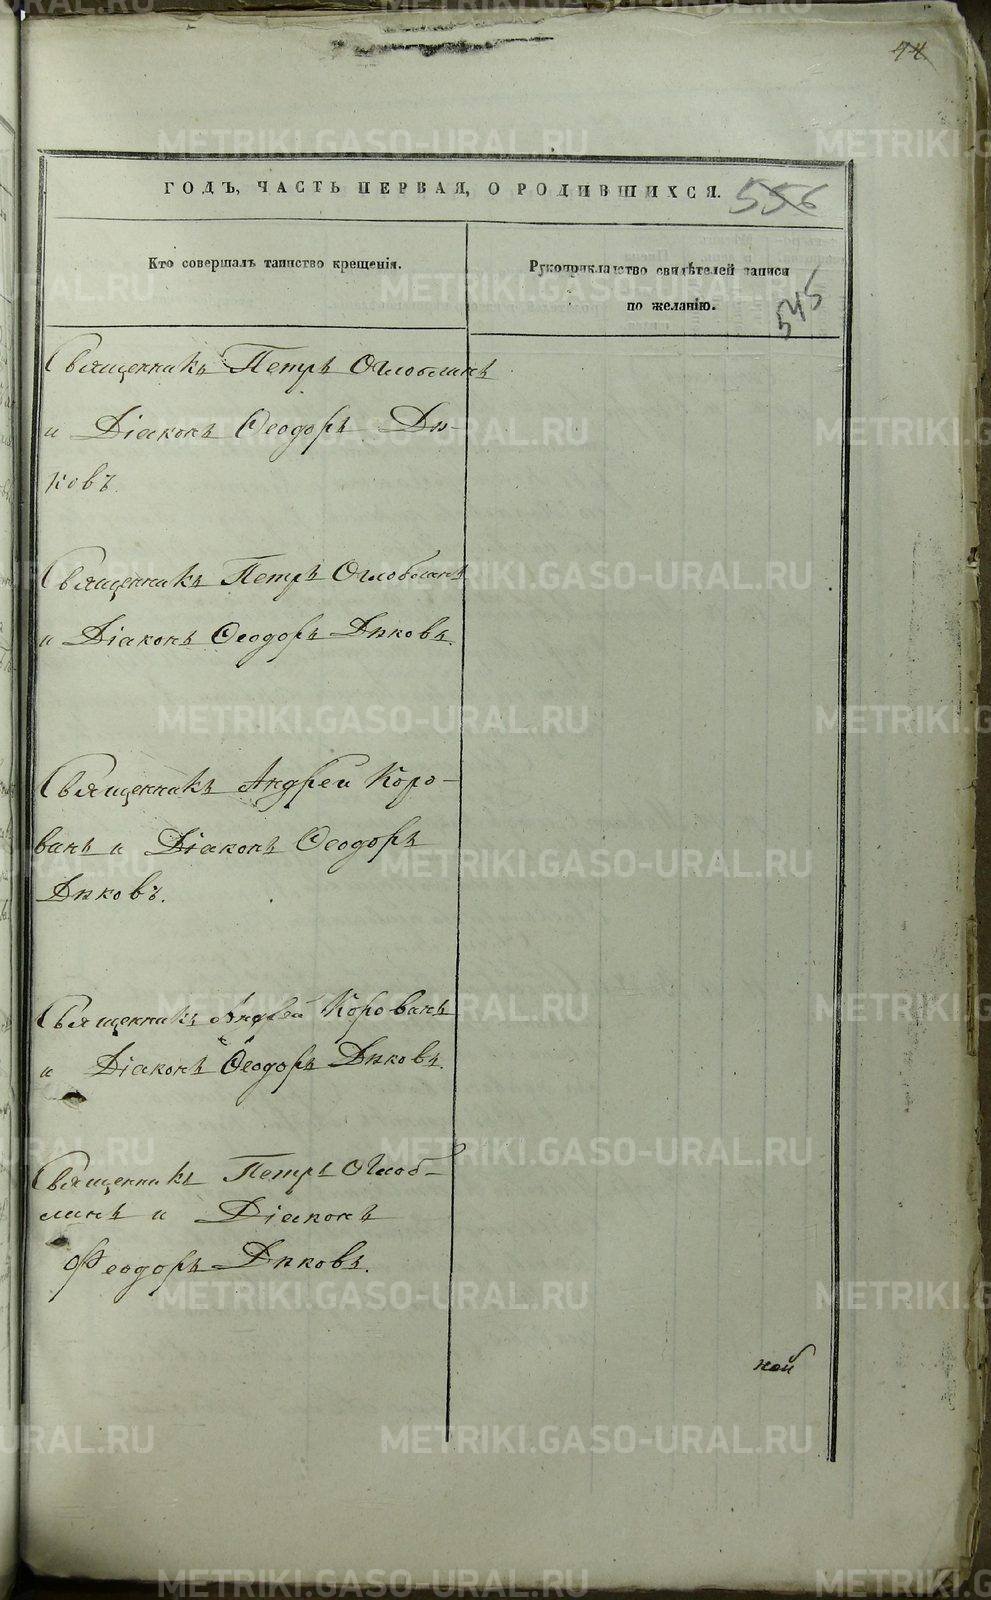 44
ГОДЪ, ЧАСТЬ ПЕРВАЯ, О РОДИВШИХСЯ.
556
Кто совершалъ таинство крещенія.
Рукоприкладство свидѣтелей записи
по желанію.
545
Священникъ Петръ Оглоблинъ
и Діаконъ Ѳеодоръ Ди-
ковъ.
Священникъ Петръ Оглоблинъ
и Діаконъ Ѳеодоръ Диковъ.
Священникъ Андрей Коро-
винъ и Діаконъ Ѳеодоръ
Диковъ.
Священникъ Андрей Коровинъ
и Діаконъ Ѳеодоръ Диковъ.
Священникъ Петръ Оглоб-
линъ и Діаконъ
Феодоръ Диковъ.
METRIKI.GASO-URAL.RU